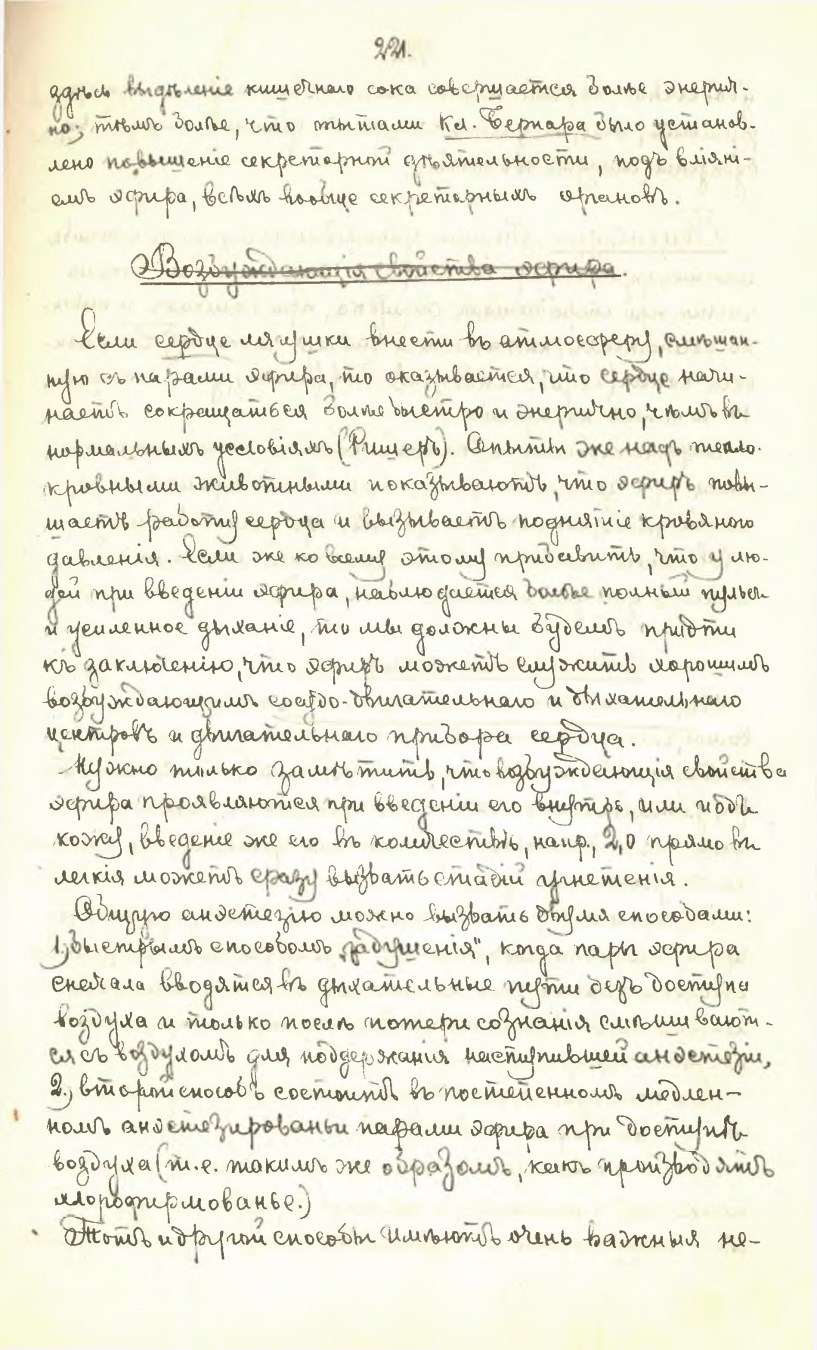 221.
здѣсь выдѣленіе кишечнаго сока совершается болѣе энергич-
но; тѣмъ болѣе, что опытами Кл. Бернара было установ-
лено повышеніе секреторной дѣятельности, подъ вліяні-
емъ эфира, всѣхъ вообще секреторныхъ органовъ.
Возбуждающія свойства эфира.
Если сердце лягушки внести въ атмосферу, смѣшан-
ную съ парами эфира, то оказывается, что сердце начи-
наетъ сокращаться болѣе быстро и энергично, чѣмъ въ
нормальныхъ условіяхъ (Ришеръ). Опыты же надъ тепло-
кровными животными показываютъ, что эфиръ повы-
шаетъ работу сердца и вызываетъ поднятіе кровяного
давленія. Если же ко всему этому прибавить, что у лю-
дей при введеніи эфира, наблюдается болѣе полный пульсъ
и усиленное дыханіе, то мы должны будемъ придти
къ заключенію, что эфиръ можетъ служить хорошимъ
возбуждающимъ сосудо-двигательнаго и дыхательнаго
центровъ и двигательнаго прибора сердца.
Нужно только замѣтить, что возбуждающія свойства
эфира проявляются при введеніи его внутрь, или подъ
кожу, введеніе же его въ количествѣ, напр., 2,0 прямо въ
легкія можетъ сразу вызвать стадій угнетенія.
Общую анэстезію можно вызвать двумя способами:
1.) быстрымъ способомъ „задушенія", когда пары эфира
сначала вводятся въ дыхательные пути безъ доступа
воздуха и только послѣ потери сознанія смѣшивают-
ся съ воздухомъ для поддержанія наступившей анэстезіи,
2.) второй способъ состоитъ въ постепенномъ медлен-
номъ анэстезированьи парами эфира при доступѣ
воздуха (т.е. такимъ же образомъ, какъ производятъ
хлороформованье.)
Тотъ и другой способы имѣютъ очень важныя не-